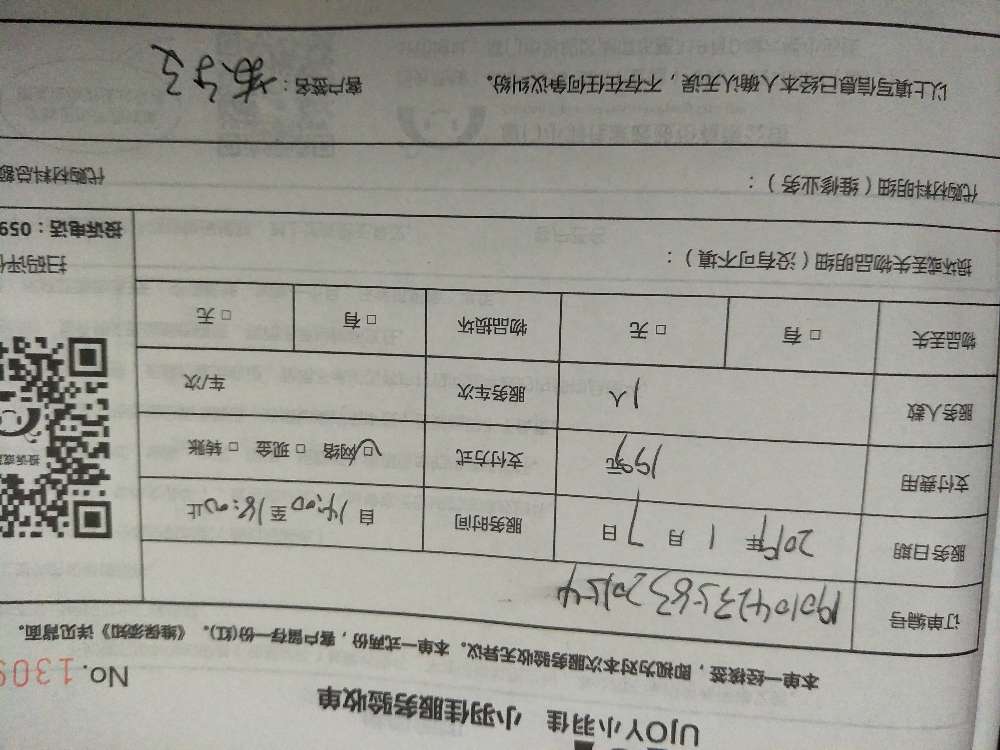 UJOY小羽佳 小羽佳服务验收单
No. 1309
本单一经核签，即视为对本次服务验收无异议。本单一式两份，客户留存一份(红)。《维保须知》详见背面。
订单编号
服务日期 2019年 1 月 7 日 服务时间 自 14:00 至 18:00 止
支付费用 199元 支付方式 □ 网络 □ 现金 □ 转账
服务人数 1人 服务车次 车/次
物品丢失 □ 有 □ 无 物品损坏 □ 有 □ 无
投诉或
扫码评
损坏或丢失物品明细（没有可不填）：
投诉电话：059
代购材料明细（维修业务）：
代购材料总额
以上填写信息已经本人确认无误，不存在任何争议纠纷。 客户签名：